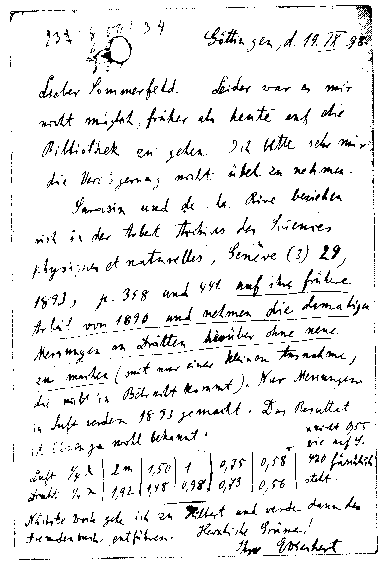 Göttingen, d. 19. IX 98.
Lieber Sommerfeld. Leider war es mir
nicht möglich, früher als heute auf die
Bibliothek zu gehen. Ich bitte sehr mir
die Verzögerung nicht übel zu nehmen.
Sarasin und de la Rive beziehen
sich in der Arbeit Archives des Sciences
physiques et naturelles, Genève (3) 29,
1893, p. 358 und 441 auf ihre frühere
Arbeit von 1890 und nehmen die damaligen
Messungen an Drähten herüber ohne neue
zu machen (mit nur einer kleinen Ausnahme,
die nicht in Betracht kommt). Nur Messungen
in Luft werden 1893 gemacht. Das Resultat
ist Ihnen ja wohl bekannt.
nicht 0,55
wie auf p.
420 fälschlich
steht.
Luft ¼ λ | 2 m | 1,50 | 1 | 0,75 | 0,58
Draht ¼ λ | 1,92 | 1,48 | 0,98 | 0,73 | 0,56
Nächste Woche gehe ich zu Hilbert und werde dann das
Fremdenbuch entführen. Herzliche Grüsse!
Ihr